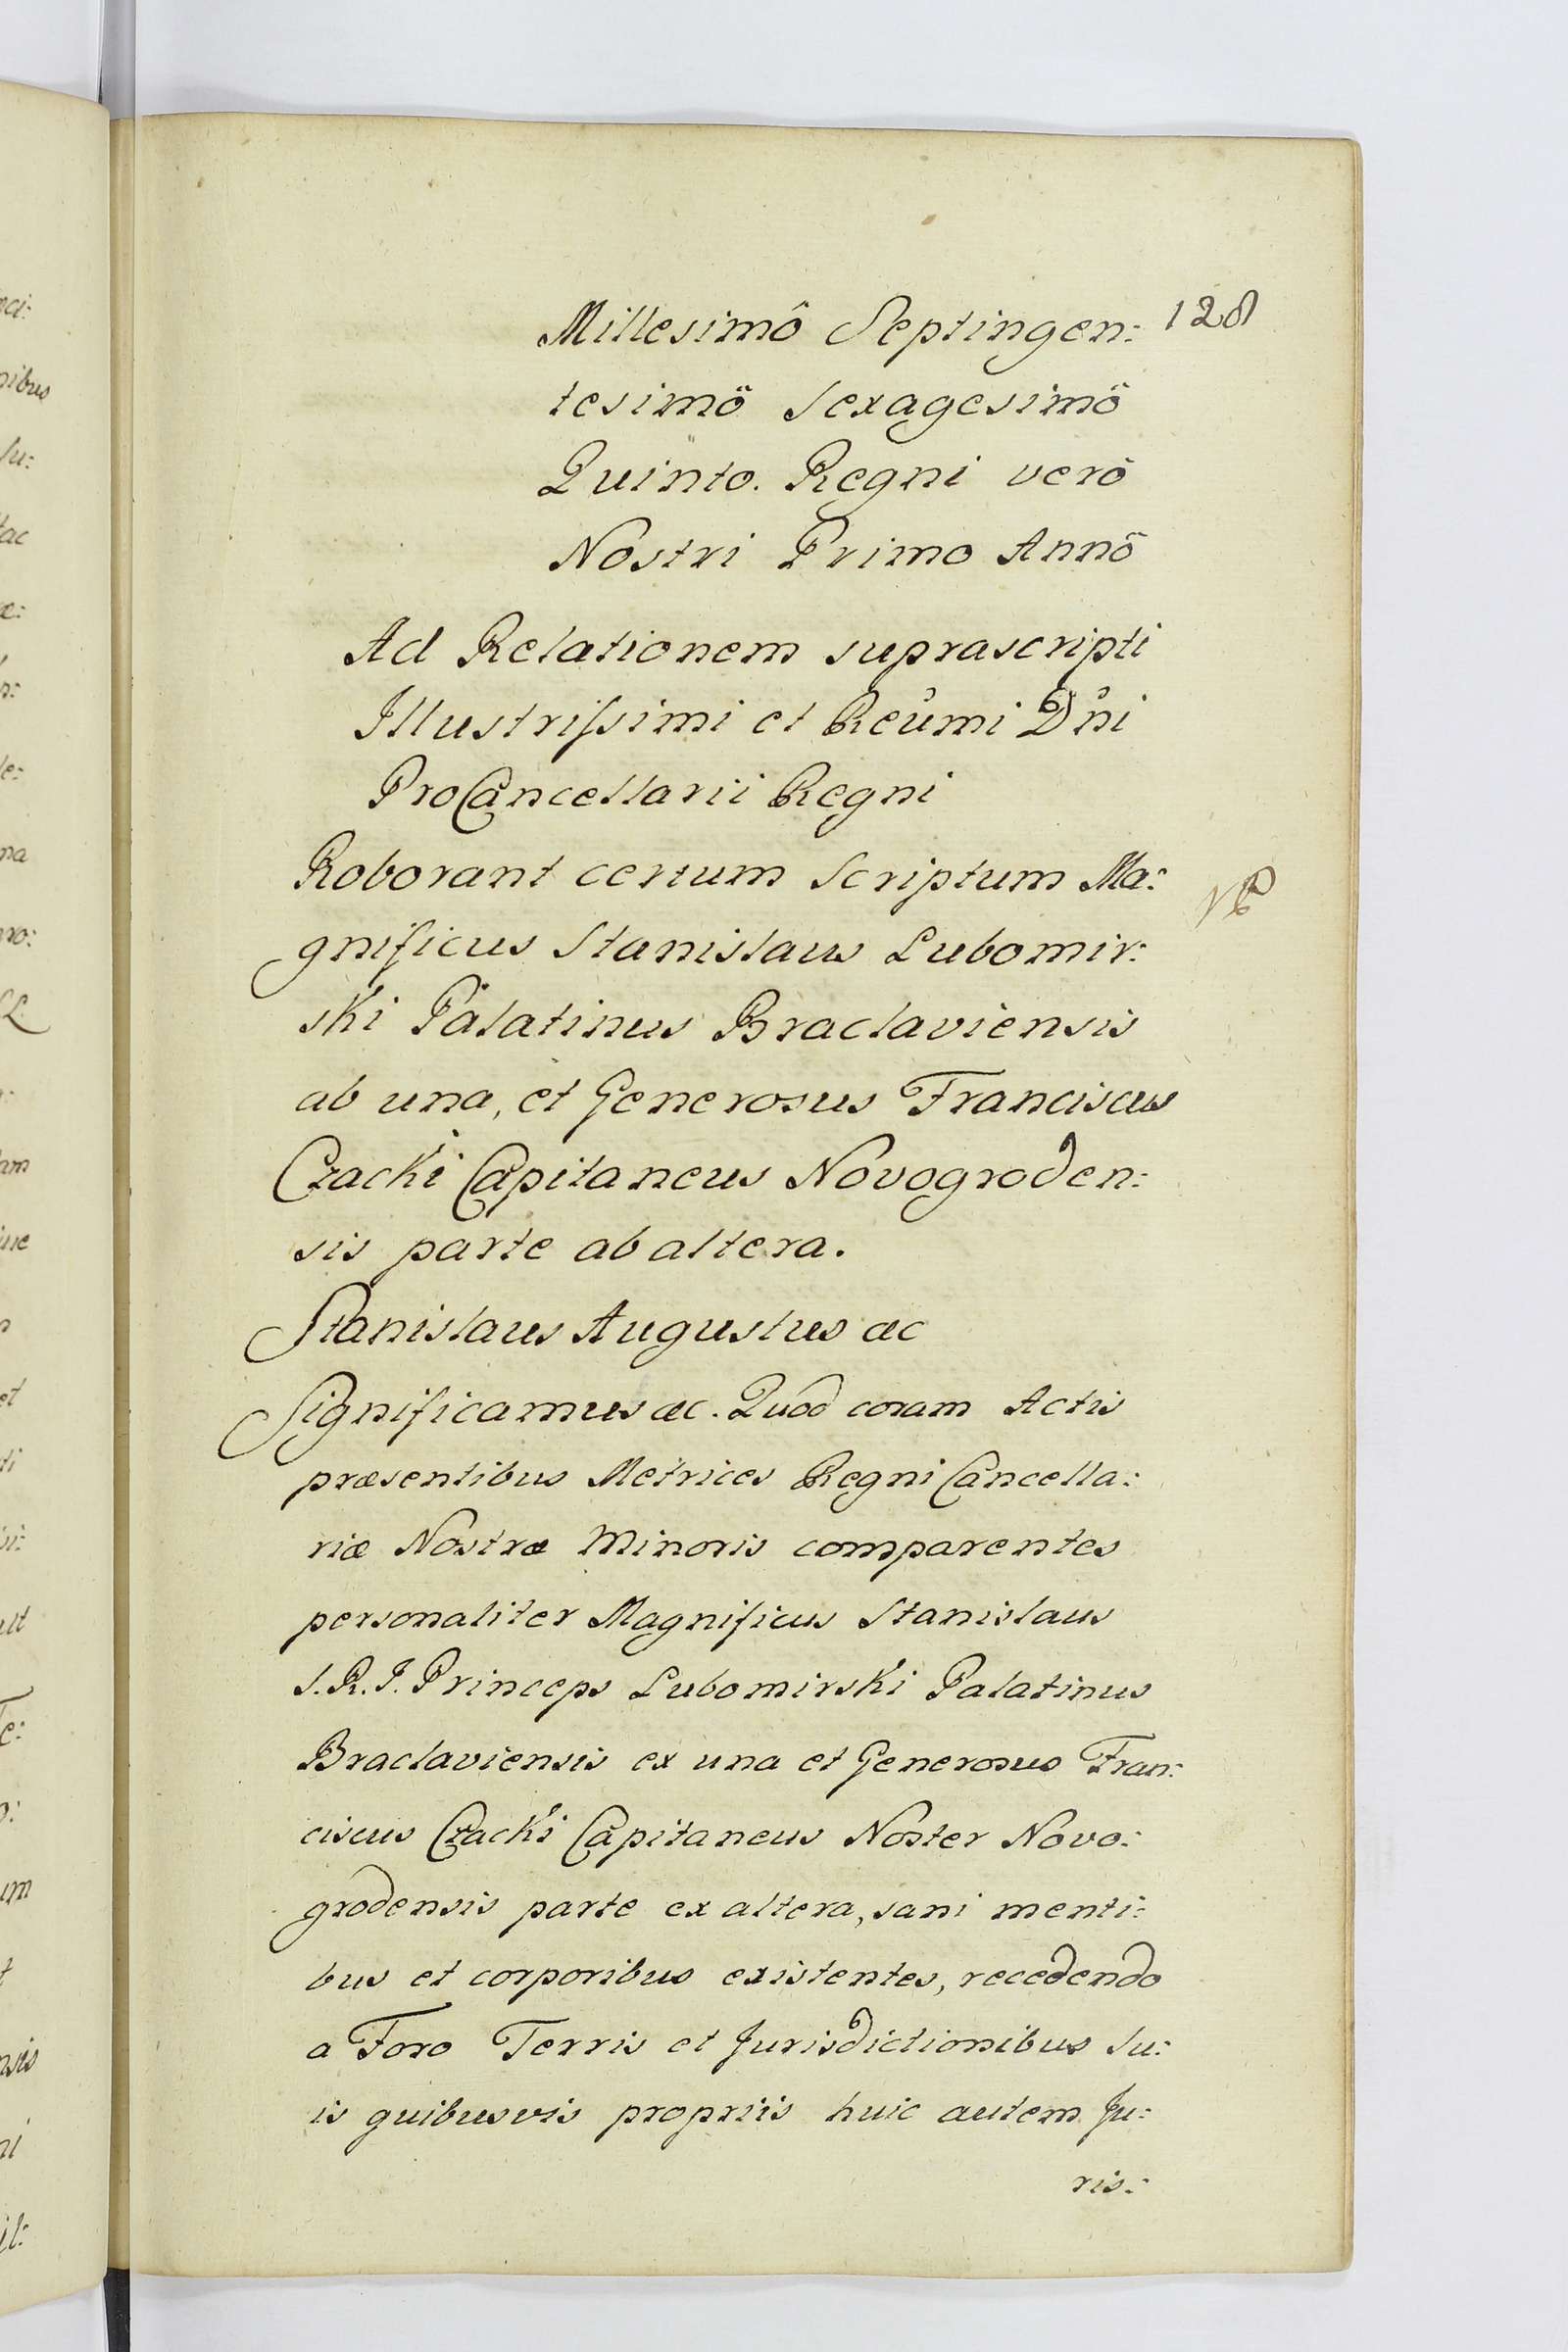 Millesimô Septingen: 128
tesimô Sexagesimô
Quinto. Regni verô
Nostri Primo Annô
Ad Relationem suprascripti
Illustrissimi et Reumi Dni
ProCancellarii Regni
Roborant certum Scriptum Ma:
gnificus Stanislaus Lubomir:
ski Palatinus Braclaviensis
ab una, et Generosus Franciscus
Czacki Capitaneus Novogroden:
sis parte ab altera.
Stanislaus Augustus &c
Significamus &c. Quod coram Actis
præsentibus Metrices Regni Cancella:
riæ Nostræ Minoris comparentes
personaliter Magnificus Stanislaus
S.R.I. Princeps Lubomirski Palatinus
Braclaviensis ex una et Generosus Fran:
ciscus Czacki Capitaneus Noster Novo:
grodensis parte ex altera, sani menti:
bus et corporibus existentes, recedendo
a Foro Terris et Jurisdictionibus Su:
is quibusvis propriis huic autem Ju:
ris: